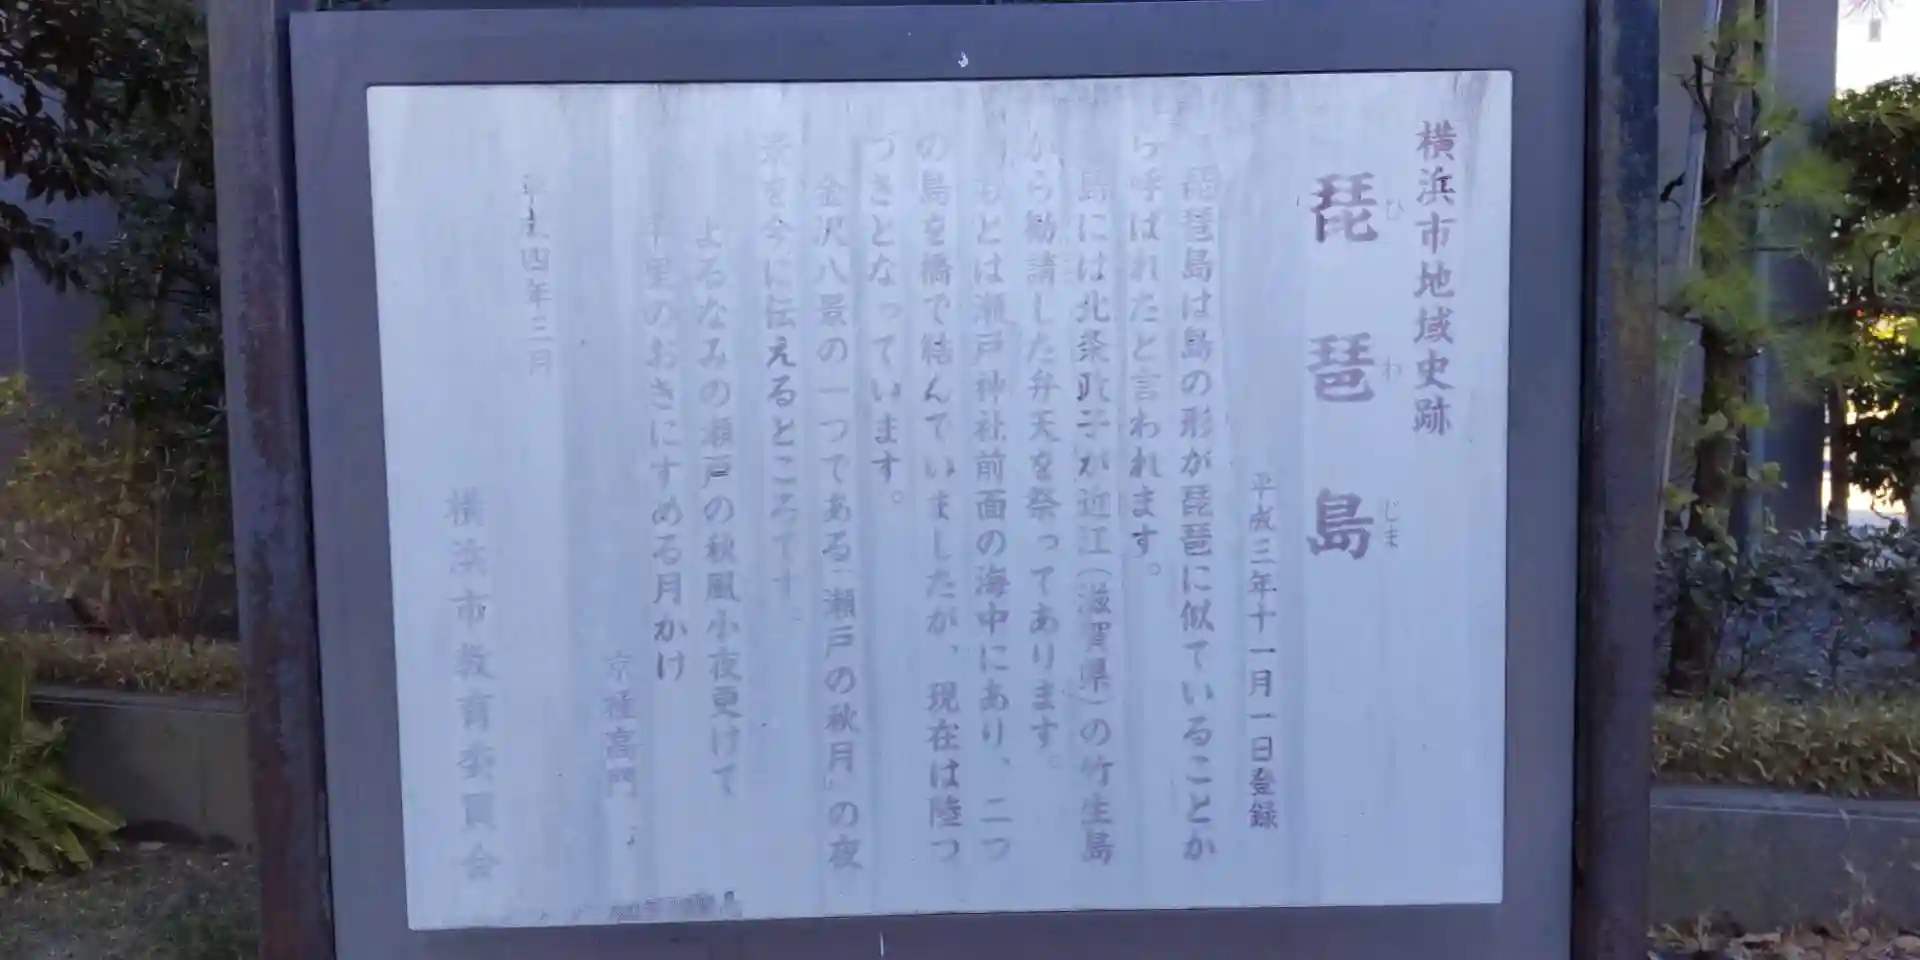 横浜市地域史跡
琵琶島
びわじま
平成三年十一月一日登録
琵琶島は島の形が琵琶に似ていることか
ら呼ばれたと言われます。
島には北条政子が近江(滋賀県)の竹生島
から勧請した弁天を祭ってあります。
もとは瀬戸神社前面の海中にあり、二つ
の島を橋で結んていましたが、現在は陸つ
づきとなっています。
金沢八景の一つである「瀬戸の秋月」の夜
景を今に伝えるところです。
よるなみの瀬戸の秋風小夜更けて
千里のおきにすめる月かけ
京極高門
平成四年三月
横浜市教育委員会